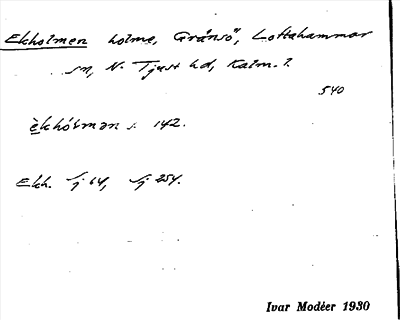 Ekholmen holme, Gränsö, Loftahammar
sn, N. Tjust hd, Kalm. l.
540
èkhólmən s. 142.
Ekh. Sj 64, Sj 254.
Ivar Modéer 1930